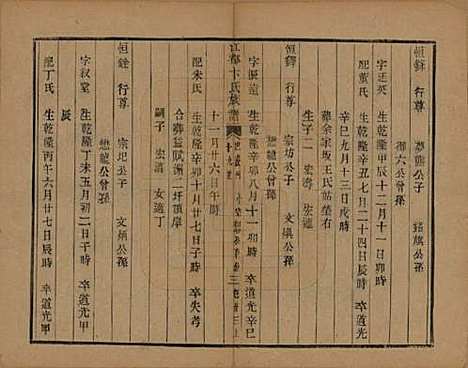 恒錄 行尊 夢龔公子 銘旗公孫
御六公曾孫
字廷英 生乾隆甲辰十二月十一日卯時
配董氏 生乾隆辛丑七月二十四日辰時 卒道光
辛巳九月十三日戌時
葬余家坂王氏站塋右
生子二 宏濤 宏逵
恒鐸 行尊 宗坊公子 文煥公孫
懋龍公曾孫
字振遠 生乾隆辛卯八月十一日卯時 卒道光辛巳
十一月廿六日午時
江都卞氏族譜
配朱氏 生乾隆辛卯十月廿七日子時 卒失考
合葬 賦洲二圩項岸
嗣子 宏清 女適丁
恒銓 行尊 宗圯公子 文煥公孫
懋龍公曾孫
字叔堂 生乾隆丁未五月初二日子時 卒道光甲
辰
配丁氏 生乾隆丙午六月廿七日辰時 卒道光甲